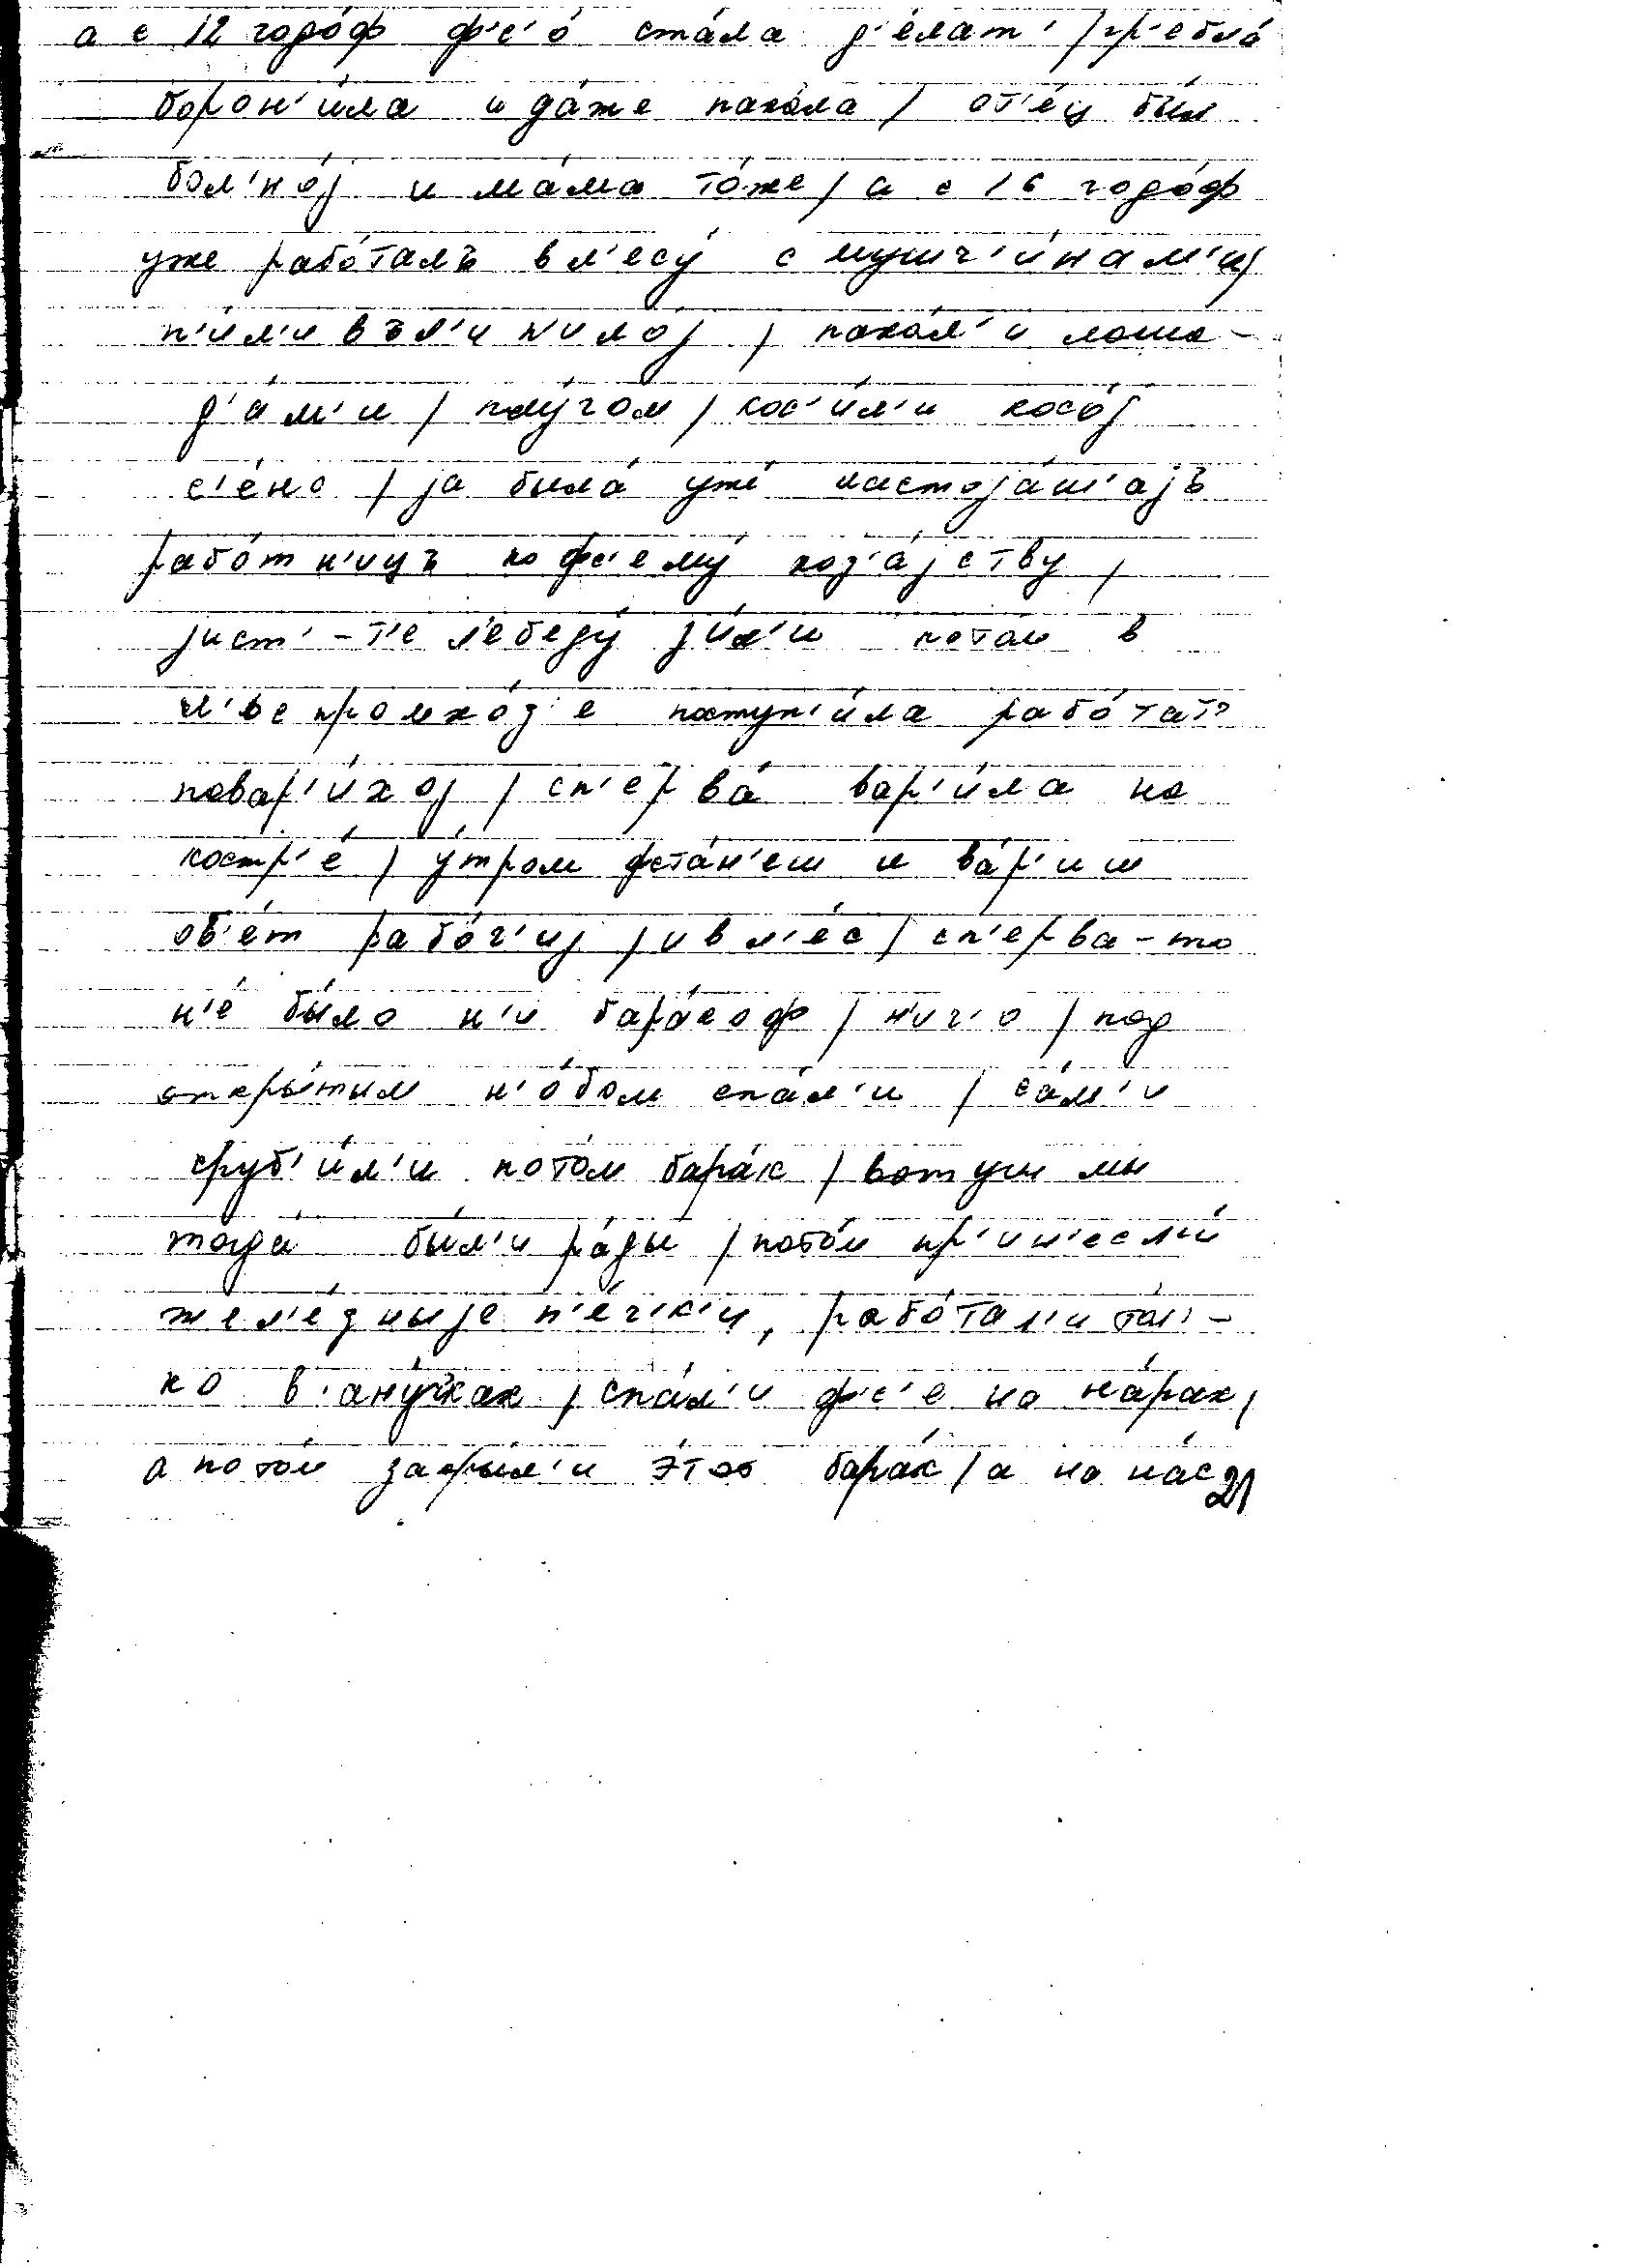 а с 12 годо́ф ф'с'о́ ста́ла д'е́лат' / гр'ебла́
борон'и́ла и да́же паха́ла / от'е́ц бы́л
бол'но́j и ма́ма то́же / а с 16 годо́ф
уже рабо́талъ в л'есу́ с мушч'и́нам'и /
п'и́л'и въл'и п'ило́j / паха́л'и лоша-
д'а́м'и / плу́гом / кос'и́л'и косо́j
с'е́но / jа была́ уже́ настоjа́ш'аjъ
рабо́тн'ицъ по фс'ему́ хоз'а́jству /
jист'-т'е л'ебеду́ jи́л'и пото́м в
л'еспромхо́з'е поступ'и́ла рабо́тат'
повар'и́хоj / сп'ерва́ вар'и́ла на
костр'е́ / у́тром фста́н'еш и ва́р'иш
об'е́т рабо́ч'иj / и в л'е́с / сп'ерва-то
н'е́ бы́ло н'и бара́коф / н'ич'о / под
откры́тым н'о́бом спа́л'и / са́м'и
сруб'и́л'и пото́м бара́к / вот уш мы
тогда́ бы́л'и ра́ды / пото́м пр'ин'есл'и́
жел'е́зныjе п'е́ч'к'и, рабо́тал'и то́л'-
ко в онучках / спа́л'и ф'с'е на на́рах /
а пото́м закры́л'и э́тот бара́к / а на нас
21